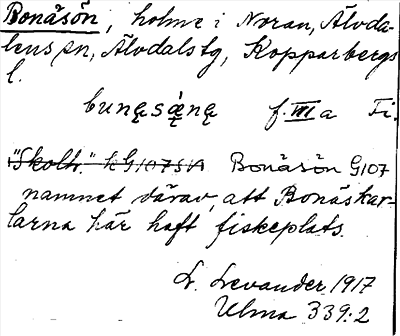 Bonäsön, holme i Noran, Älvda-
lens sn, Älvdalstg, Kopparbergs
l.
bunęsą̀nę f. III a Fi.
"Skolh." k G107SV Bonäsön G107
namnet därav, att Bonäskar-
larna här haft fiskeplats.
L. Levander 1917
Ulma 339:2